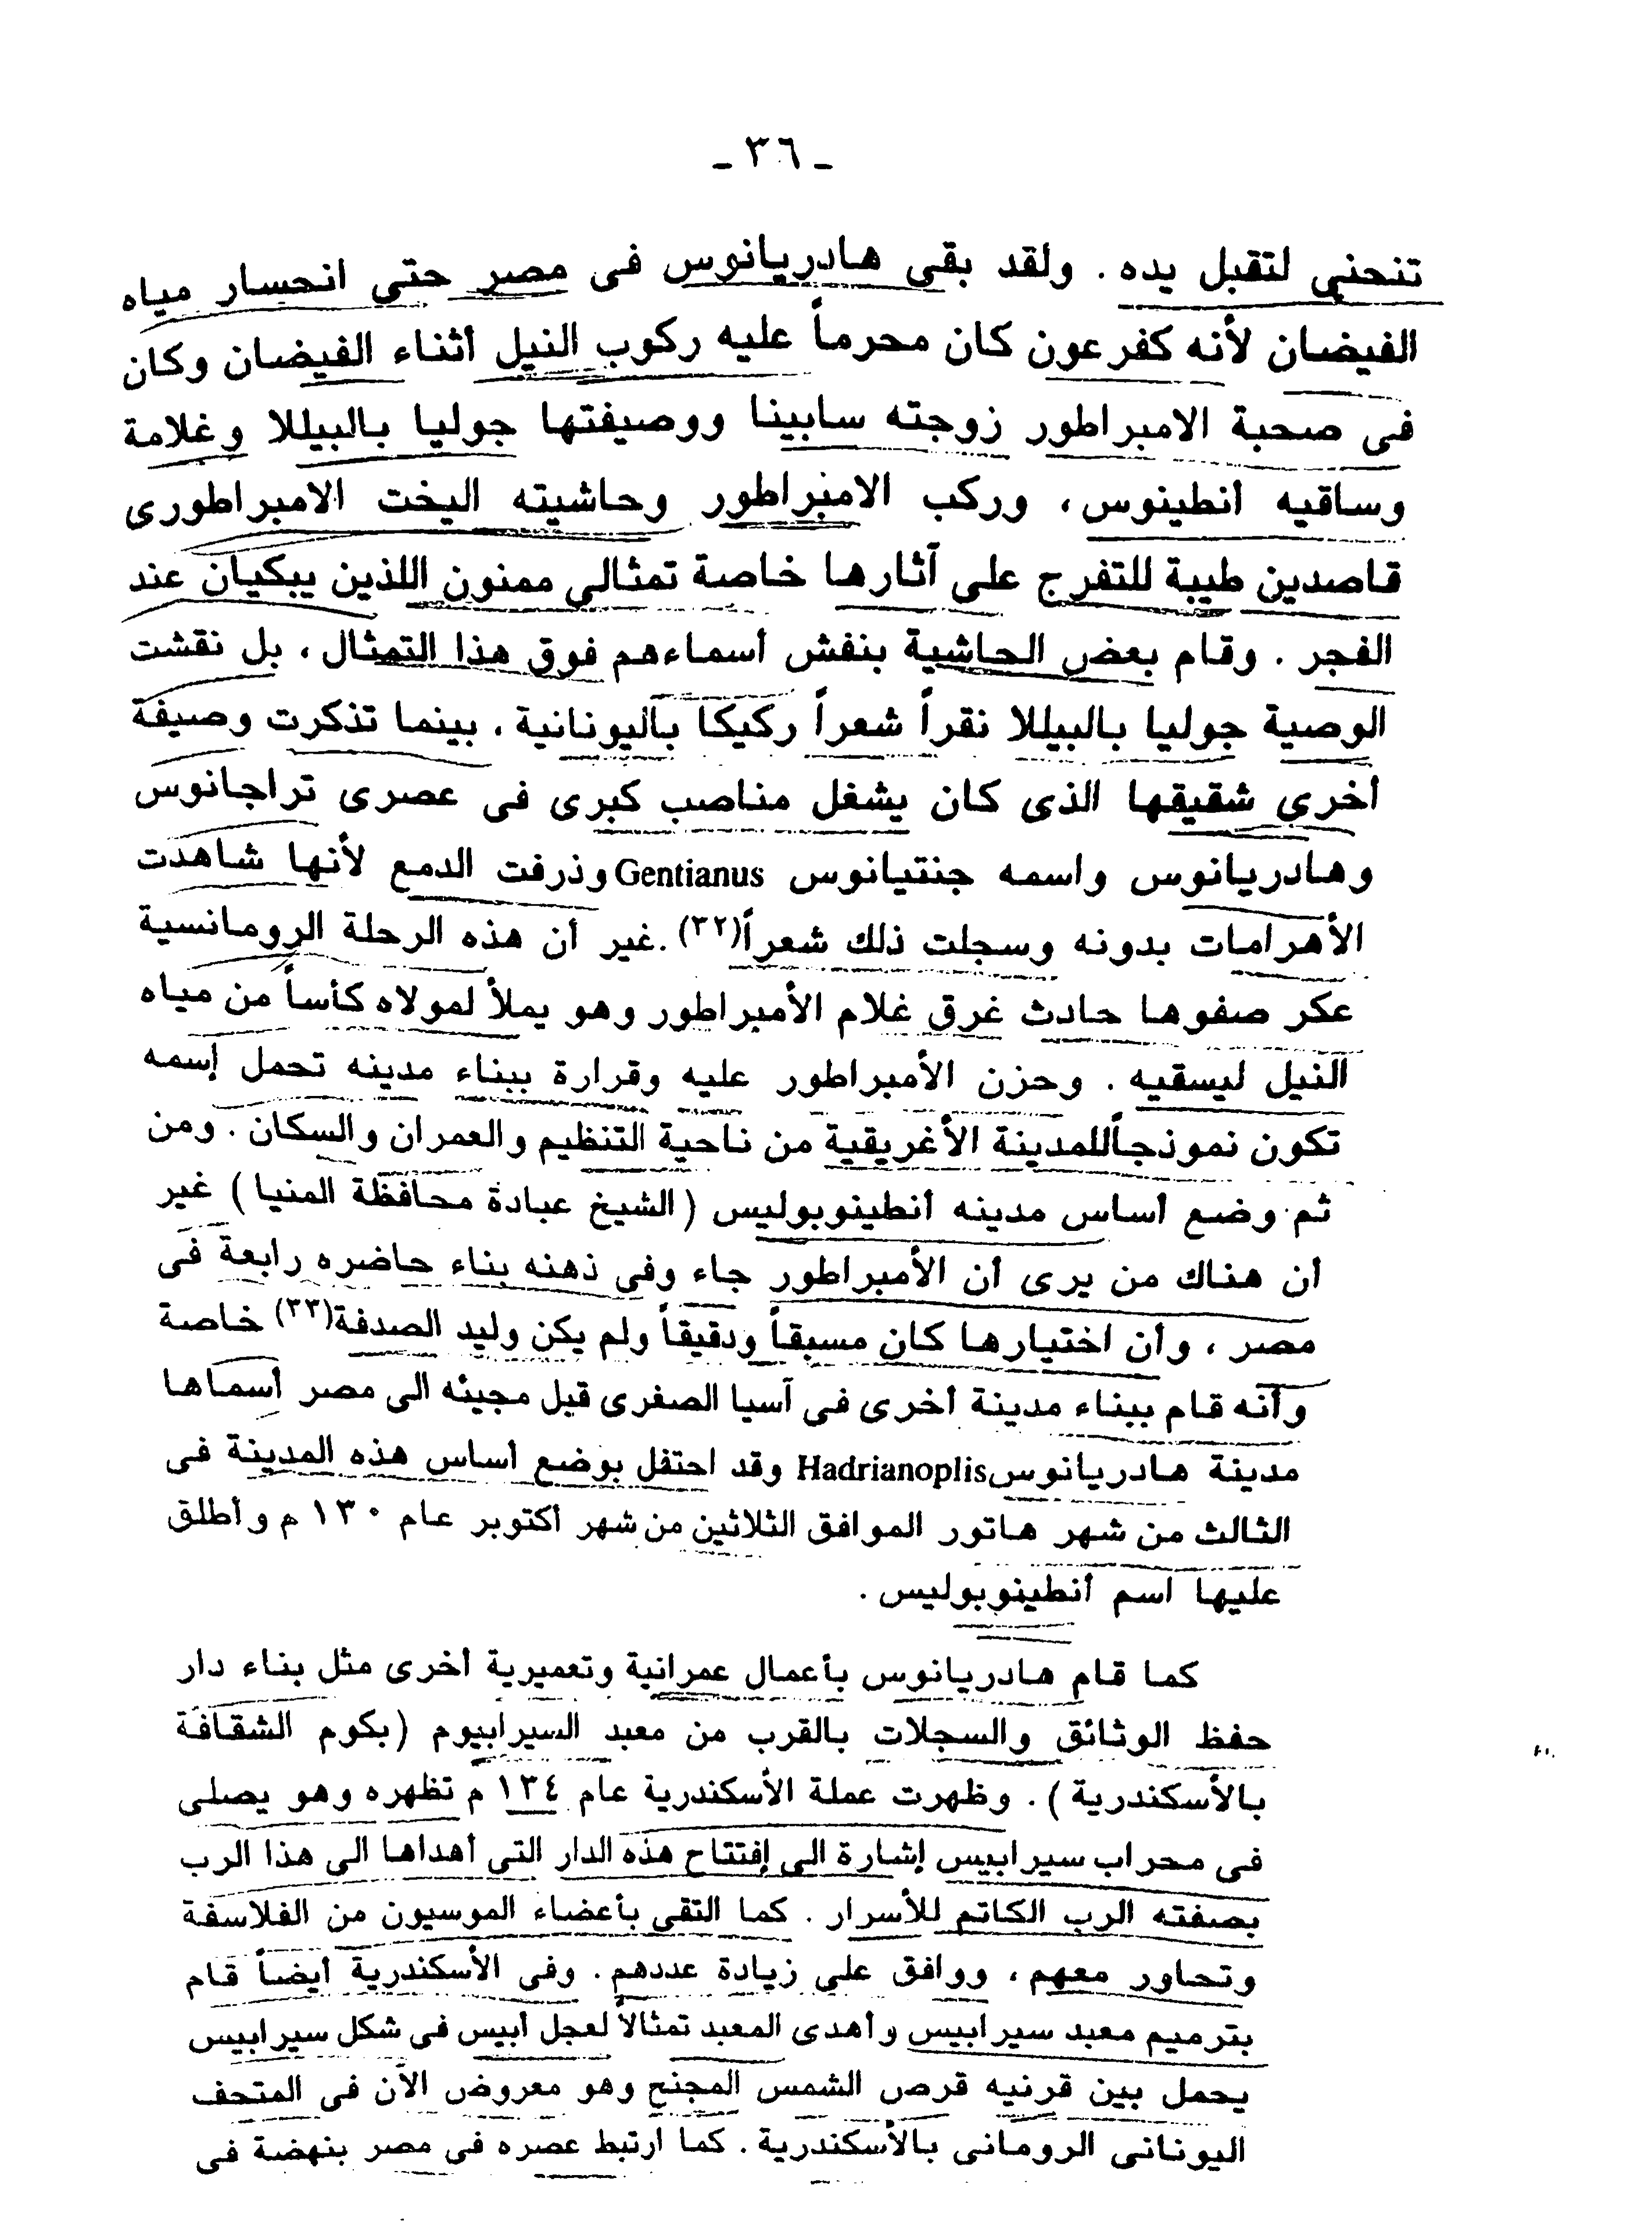 - ٣٦ -
تنحنى لتقبل يده . ولقد بقى هادريانوس فى مصر حتى انحسار مياه
الفيضان لأنه كفرعون كان محرماً عليه ركوب النيل أثناء الفيضان وكان
فى صحبة الامبراطور زوجته سابينا ووصيفتها جوليا بالبيللا وغلامة
وساقيه أنطينوس، وركب الامبراطور وحاشيته اليخت الامبراطورى
قاصدين طيبة للتفرج على آثارها خاصة تمثالى ممنون اللذين يبكيان عند
الفجر . وقام بعض الحاشية بنفش أسماءهم فوق هذا التمثال ، بل نقشت
الوصية جوليا بالبيللا نقرأ شعراً ركيكا باليونانية ، بينما تذكرت وصيفة
أخرى شقيقها الذى كان يشغل مناصب كبرى فى عصرى تراجانوس
وهادريانوس واسمه جنتيانوس Gentianus وذرفت الدمع لأنها شاهدت
الأهرامات بدونه وسجلت ذلك شعراً(٣٢) .غير أن هذه الرحلة الرومانسية
عكر صفوها حادث غرق غلام الأمبراطور وهو يملأ لمولاه كأساً من مياه
النيل ليسقيه . وحزن الأمبراطور عليه وقرارة ببناء مدينه تحمل إسمه
تكون نموذجاًللمدينة الأغريقية من ناحية التنظيم والعمران والسكان . ومن
ثم وضع أساس مدينه أنطينوبوليس (الشيخ عبادة محافظة المنيا ) غير
أن هناك من يرى أن الأمبراطور جاء وفى ذهنه بناء حاضره رابعة فى
مصر ، وأن اختيارها كان مسبقاً ودقيقاً ولم يكن وليد الصدفة(٣٣) خاصة
وأنه قام ببناء مدينة أخرى فى آسيا الصغرى قبل مجيئه الى مصر أسماها
مدينة هادريانوسHadrianoplis وقد احتفل بوضع أساس هذه المدينة فى
الثالث من شهر هاتور الموافق الثلاثين من شهر أكتوبر عام ١٣٠ م وأطلق
عليها اسم أنطينوبوليس .
كما قام هادريانوس بأعمال عمرانية وتعميرية أخرى مثل بناء دار
حفظ الوثائق والسجلات بالقرب من معبد السيرابيوم (بكوم الشقافة
بالأسكندرية ) . وظهرت عملة الأسكندرية عام ١٣٤ م تظهره وهو يصلى
فى محراب سيرابيس إشارة الى إفتتاح هذه الدار التى أهداها الى هذا الرب
بصفته الرب الكاتم للأسرار . كما التقى بأعضاء الموسيون من الفلاسفة
وتحاور معهم ، ووافق على زيادة عددهم . وفى الأسكندرية أيضاً قام
بترميم معبد سيرابيس وأهدى المعبد تمثالاً لعجل أبيس فى شكل سيرابيس
يحمل بين قرنيه قرص الشمس المجنح وهو معروض الآن فى المتحف
اليونانى الرومانى بالأسكندرية . كما ارتبط عصره فى مصر بنهضة فى